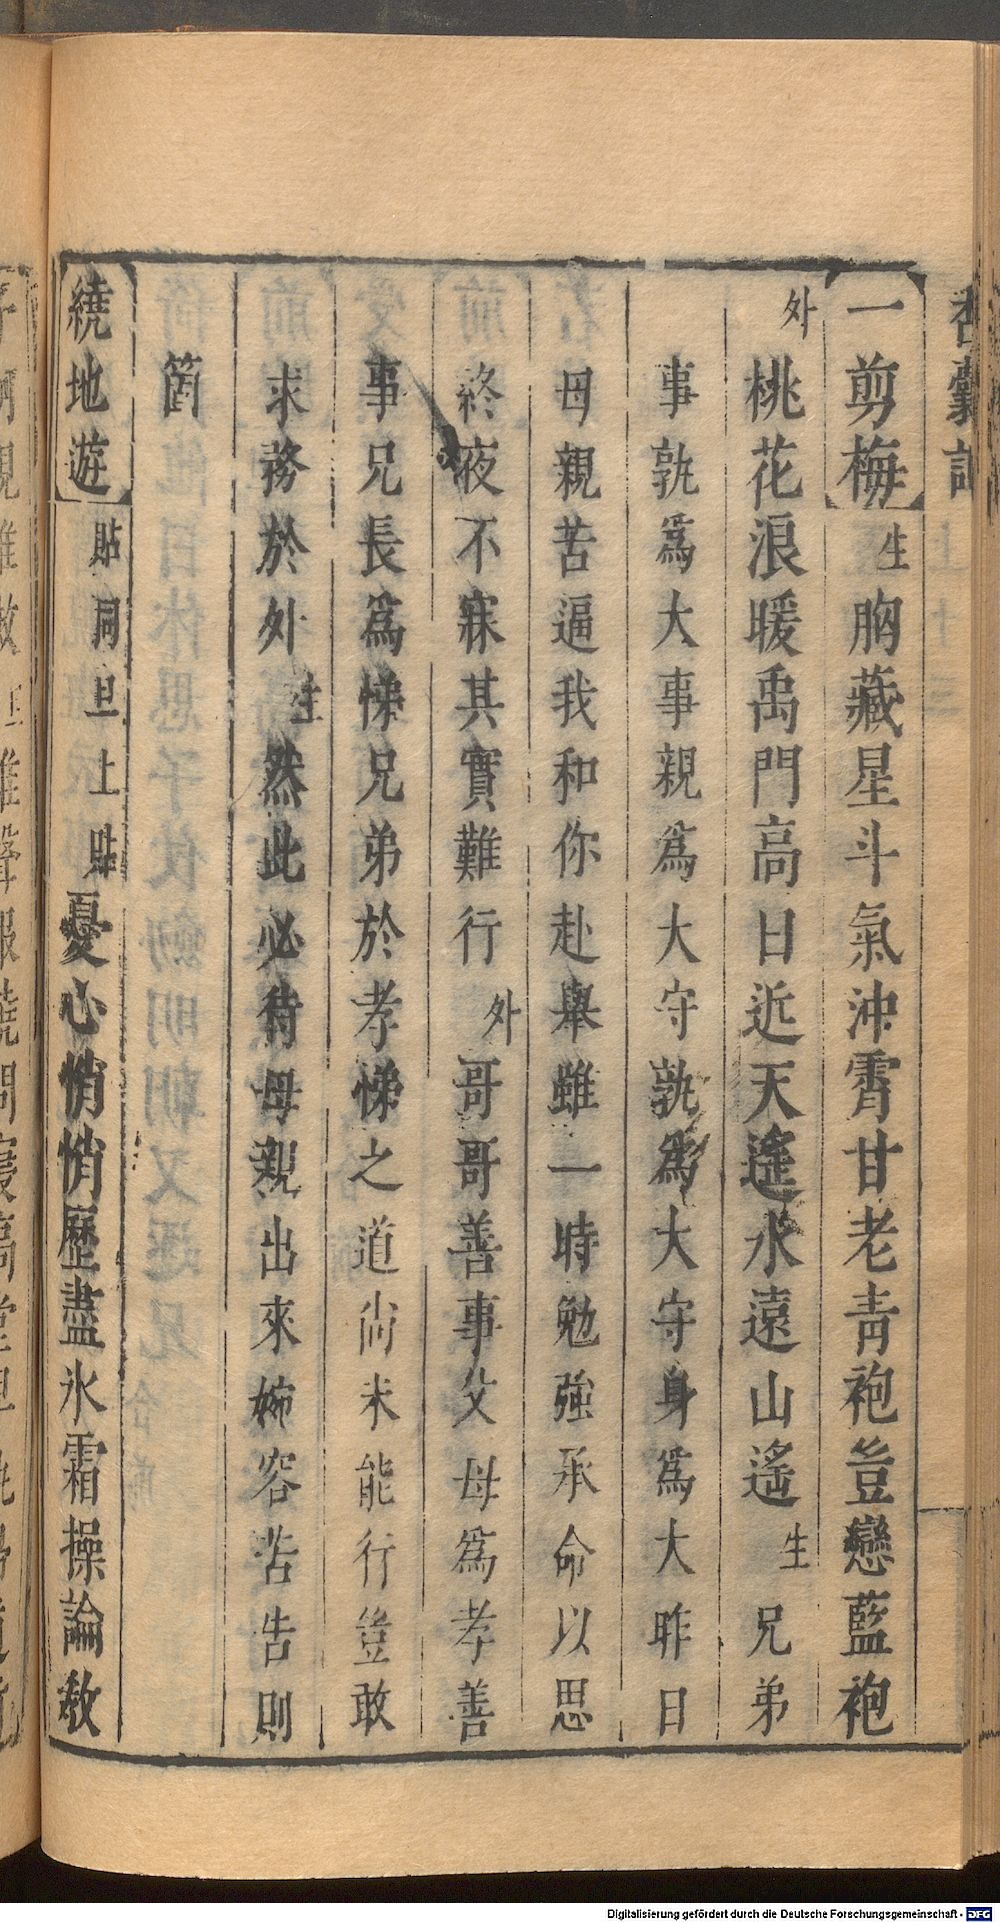 香囊記
一剪梅 生 胸藏星斗氣沖霄甘老青袍豈戀藍袍
外 桃花浪暖禹門高日近天遙水遠山遙 生 兄弟
事孰為大事親為大守孰為大守身為大昨日
母親苦逼我和你赴舉雖一時勉強承命以思
終夜不寐其實難行 外 哥哥善事父母為孝善
事兄長為悌兄弟於孝悌之道尚未能行豈敢
求務於外 生 然此必待母親出來婉容苦告則
箇
繞地遊 貼同旦上 貼 憂心悄悄歷盡氷霜操論教
Digitalisierung gefördert durch die Deutsche Forschungsgemeinschaft - DFG